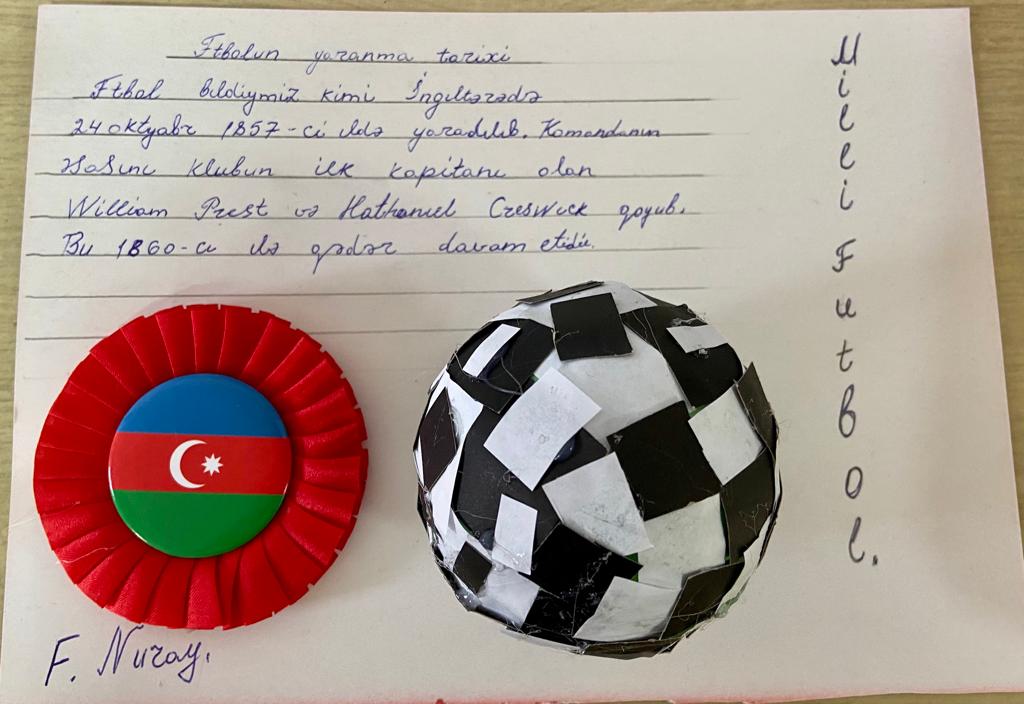 Ftbolun yaranma tarixi
Ftbol bildiymiz kimi İngiltərədə
24 oktyabr 1857-ci ildə yaradılıb. Komandanın
əsasını klubun ilk kapitanı olan
William Prest və Nathaniel Creswick qoyub.
Bu 1860-cı ilə qədər davam etidir.
Milli Futbol.
F. Nuray.